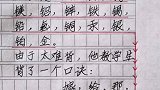 镁、铝、锌、铁、锡、
铅、氢、铜、汞、银、
铂、金。
由于太难背,他教学生
背了一个口诀:
嫁给那